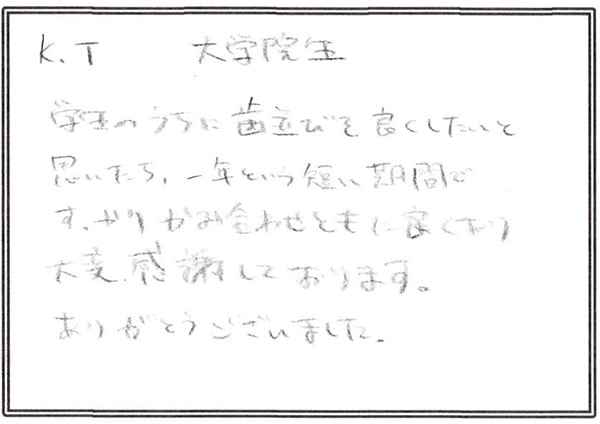 K.T 大学院生
学生のうちに歯並びを良くしたいと
思いたち、一年という短い期間で
すっかりかみ合わせともに良くなり
大変感謝しております。
ありがとうございました。